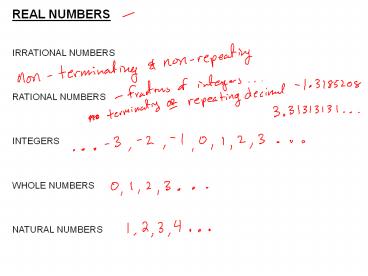 REAL NUMBERS –
IRRATIONAL NUMBERS
non - terminating & non-repeating
RATIONAL NUMBERS – fractions of integers ... -1.3185208
terminating or repeating decimal
3.31313131...
INTEGERS ... -3, -2, -1, 0, 1, 2, 3 ...
WHOLE NUMBERS 0, 1, 2, 3 ...
NATURAL NUMBERS 1, 2, 3, 4 ...